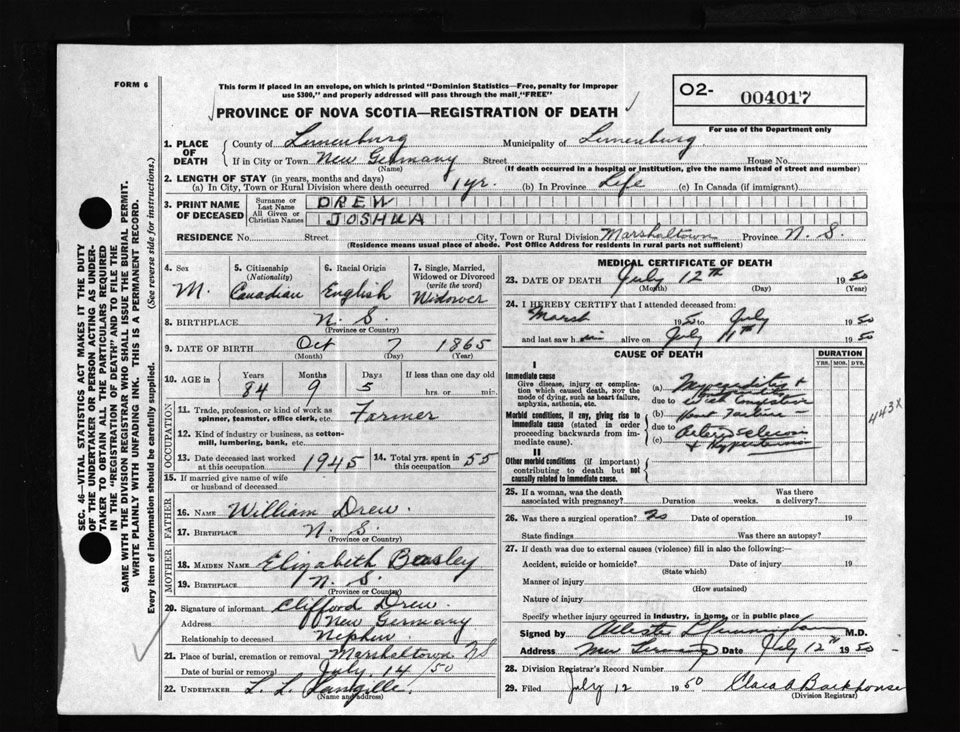 FORM 6
This form if placed in an envelope, on which is printed "Dominion Statistics—Free, penalty for improper
use $300," and properly addressed will pass through the mail, "FREE"
PROVINCE OF NOVA SCOTIA—REGISTRATION OF DEATH
O2- 004017
For use of the Department only
SEC. 46—VITAL STATISTICS ACT MAKES IT THE DUTY
OF THE UNDERTAKER OR PERSON ACTING AS UNDER-
TAKER TO OBTAIN ALL THE PARTICULARS REQUIRED
IN THE "REGISTRATION OF DEATH" AND TO FILE THE
SAME WITH THE DIVISION REGISTRAR WHO SHALL ISSUE THE BURIAL PERMIT.
WRITE PLAINLY WITH UNFADING INK. THIS IS A PERMANENT RECORD.
Every item of information should be carefully supplied. (See reverse side for instructions.)
1. PLACE OF DEATH
County of Lunenburg Municipality of Lunenburg
If in City or Town New Germany Street House No.
(Name) (If death occurred in a hospital or institution, give the name instead of street and number)
2. LENGTH OF STAY (in years, months and days)
(a) In City, Town or Rural Division where death occurred 1 yr. (b) In Province Life (c) In Canada (if immigrant)
3. PRINT NAME OF DECEASED
Surname or Last Name DREW
All Given or Christian Names JOSHUA
RESIDENCE No. Street City, Town or Rural Division Marshaltown Province N. S.
(Residence means usual place of abode. Post Office Address for residents in rural parts not sufficient)
4. Sex M.
5. Citizenship (Nationality) Canadian
6. Racial Origin English
7. Single, Married, Widowed or Divorced (write the word) Widower
8. BIRTHPLACE N. S.
(Province or Country)
9. DATE OF BIRTH Oct 7 1865
(Month) (Day) (Year)
10. AGE in Years Months Days If less than one day old
84 9 5 hrs. or min.
OCCUPATION
11. Trade, profession, or kind of work as spinner, teamster, office clerk, etc. Farmer
12. Kind of industry or business, as cotton-mill, lumbering, bank, etc.
13. Date deceased last worked at this occupation 1945 14. Total yrs. spent in this occupation 55
15. If married give name of wife or husband of deceased
FATHER
16. NAME William Drew.
17. BIRTHPLACE N. S.
(Province or Country)
MOTHER
18. MAIDEN NAME Elizabeth Beasley
19. BIRTHPLACE N. S.
(Province or Country)
20. Signature of informant Clifford Drew.
Address New Germany
Relationship to deceased Nephew.
21. Place of burial, cremation or removal Marshaltown NS
Date of burial or removal July 14/50
22. UNDERTAKER L. L. Langille.
(Name and address)
MEDICAL CERTIFICATE OF DEATH
23. DATE OF DEATH July 12th 1950
(Month) (Day) (Year)
24. I HEREBY CERTIFY that I attended deceased from:
March 1950 to July 1950
and last saw him alive on July 11th 1950
CAUSE OF DEATH DURATION
YRS. MOS. DYS.
I
Immediate cause
Give disease, injury or complication which caused death, NOT the mode of dying, such as heart failure, asphyxia, asthenia, etc.
Morbid conditions, if any, giving rise to immediate cause (stated in order proceeding backwards from immediate cause).
II
Other morbid conditions (if important) contributing to death but not causally related to immediate cause.
(a) Myocarditis +
due to with Congestive
(b) Heart Failure —
due to Arteriosclerosis
(c) + Hypertension
443X
25. If a woman, was the death associated with pregnancy? Duration weeks. Was there a delivery?
26. Was there a surgical operation? No Date of operation 19
State findings Was there an autopsy?
27. If death was due to external causes (violence) fill in also the following:—
Accident, suicide or homicide? Date of injury 19
(State which)
Manner of injury
(How sustained)
Nature of injury
Specify whether injury occurred in industry, in home, or in public place
Signed by M.D.
Address New Germany Date July 12th 1950
28. Division Registrar's Record Number
29. Filed July 12 1950 Clara A Barkhouse
(Division Registrar)